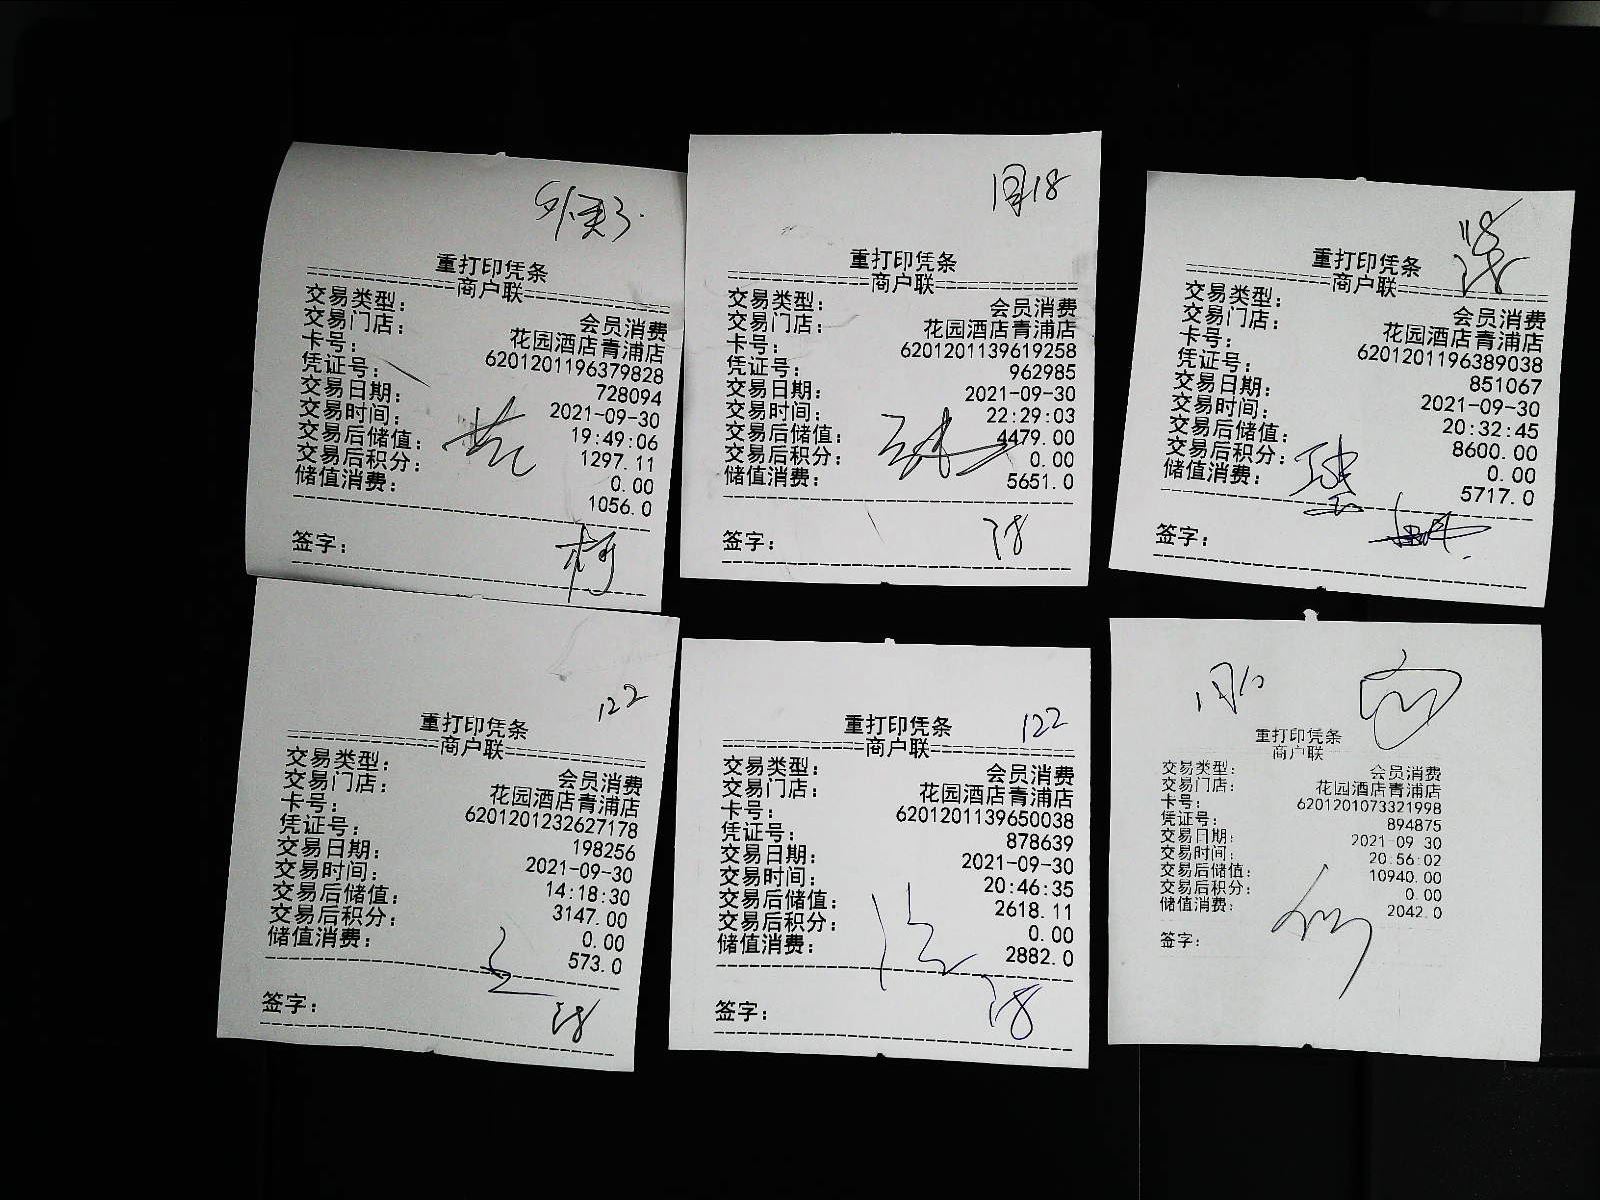 重打印凭条
商户联
交易类型： 会员消费
交易门店： 花园酒店青浦店
卡号： 6201201196379828
凭证号： 728094
交易日期： 2021-09-30
交易时间： 19:49:06
交易后储值： 1297.11
交易后积分： 0.00
储值消费： 1056.0
签字：
18
重打印凭条
商户联
交易类型： 会员消费
交易门店： 花园酒店青浦店
卡号： 6201201139619258
凭证号： 962985
交易日期： 2021-09-30
交易时间： 22:29:03
交易后储值： 4479.00
交易后积分： 0.00
储值消费： 5651.0
签字：
重打印凭条
商户联
交易类型： 会员消费
交易门店： 花园酒店青浦店
卡号： 6201201196389038
凭证号： 851067
交易日期： 2021-09-30
交易时间： 20:32:45
交易后储值： 8600.00
交易后积分： 0.00
储值消费： 5717.0
签字：
122
重打印凭条
商户联
交易类型： 会员消费
交易门店： 花园酒店青浦店
卡号： 6201201232627178
凭证号： 198256
交易日期： 2021-09-30
交易时间： 14:18:30
交易后储值： 3147.00
交易后积分： 0.00
储值消费： 573.0
签字：
122
重打印凭条
商户联
交易类型： 会员消费
交易门店： 花园酒店青浦店
卡号： 6201201139650038
凭证号： 878639
交易日期： 2021-09-30
交易时间： 20:46:35
交易后储值： 2618.11
交易后积分： 0.00
储值消费： 2882.0
签字：
重打印凭条
商户联
交易类型： 会员消费
交易门店： 花园酒店青浦店
卡号： 6201201073321998
凭证号： 894875
交易日期： 2021-09-30
交易时间： 20:56:02
交易后储值： 10940.00
交易后积分： 0.00
储值消费： 2042.0
签字：